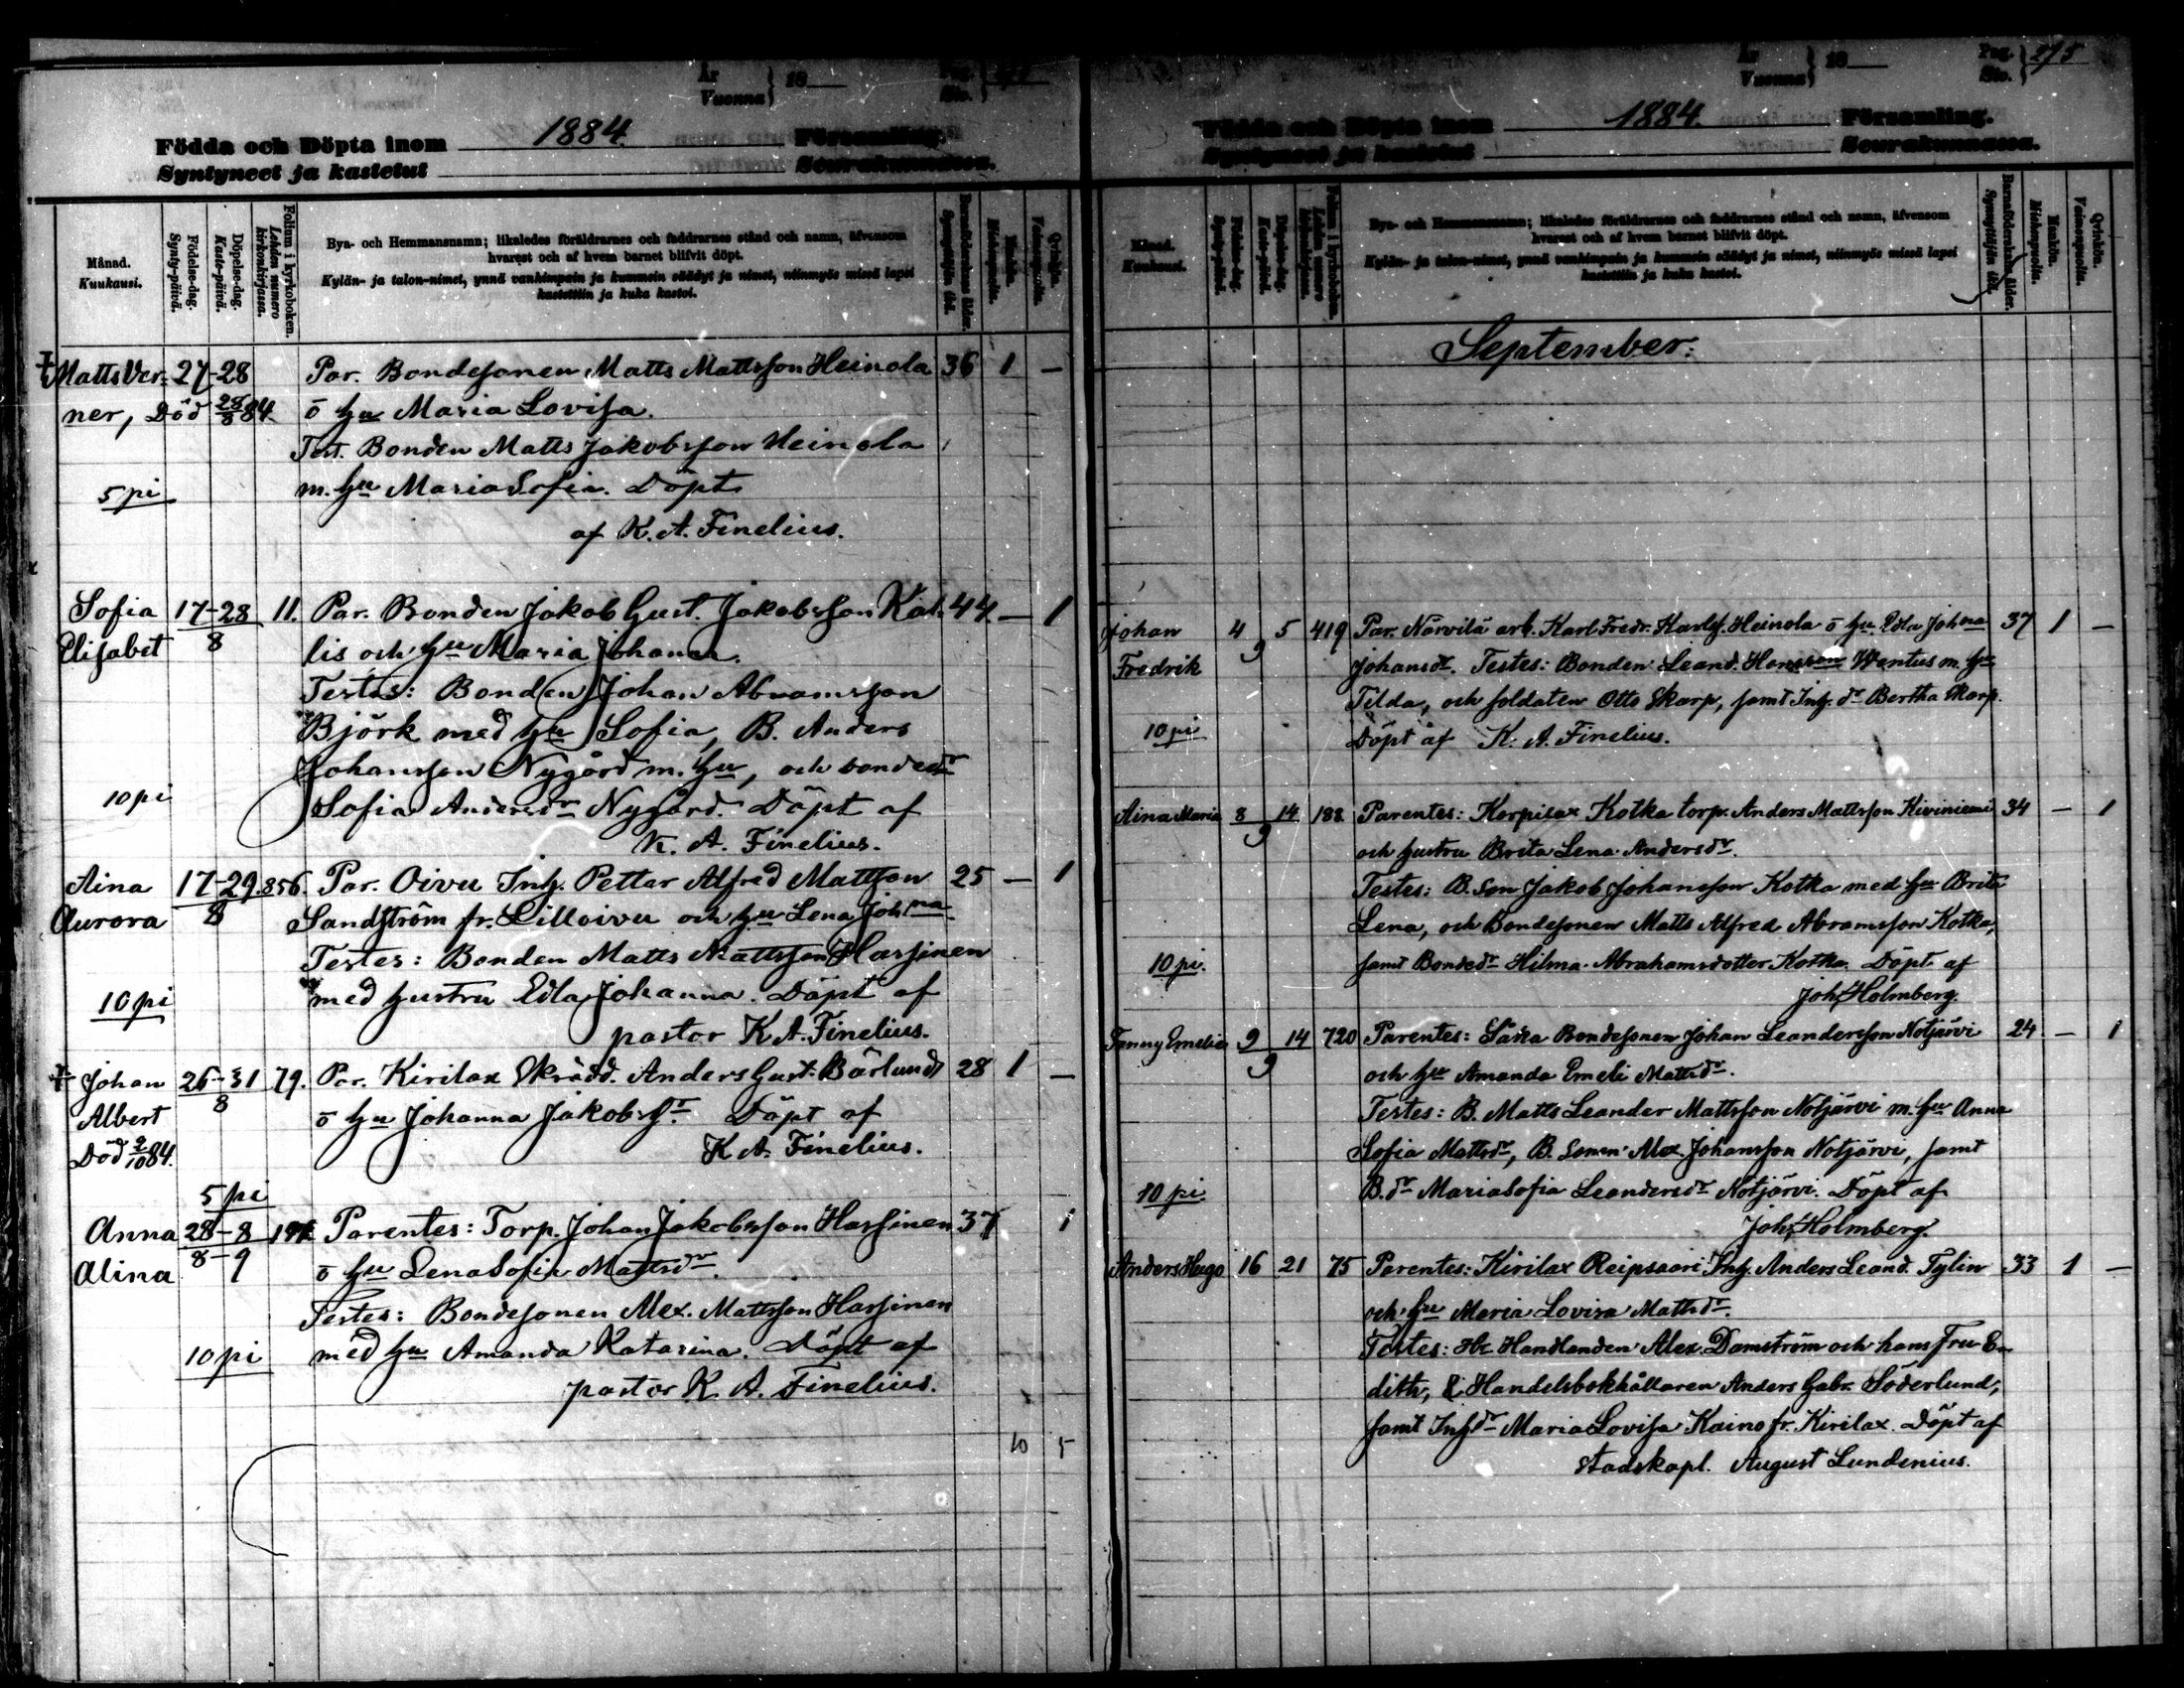 År Vuonna } 18
Pag. Siv.
Födda och Döpta inom 1884. Församling.
Syntyneet ja kastetut Seurakunnassa.
Månad. Kuukausi.
Födelse-dag. Synty-päivä.
Döpelse-dag. Kaste-päivä.
Folium i kyrkoboken. Lehden numero kirkonkirjassa.
Bya- och Hemmansnamn; likaledes föräldrarnes och faddrarnes stånd och namn, äfvensom
hvarest och af hvem barnet blifvit döpt.
Kylän- ja talon-nimet, ynnä vanhimpain ja kummein säädyt ja nimet, niinmyös missä lapsi
kastettiin ja kuka kastoi.
Barnaföderskans ålder. Synnyttäjän ikä.
Mankön. Miehenpuolia.
Qvinkön. Vaimonpuolia.
Matts Ver- 27-28 Par. Bondesonen Matts Mattsson Heinola 36 1 —
ner, Död 28/8 84. o hu Maria Lovisa.
Test. Bonden Matts Jakobsson Heinola
5 pi m. hu Maria Sofia. Döpt
af K. A. Finelius.
Sofia 17-28 11. Par. Bonden Jakob Gust. Jakobsson Kal- 44. — 1
Elisabet 8 lis och hu Maria Johanna.
Testes: Bonden Johan Abramsson
Björk med hu Sofia, B. Anders
Johansson Nygård m. hu, och bondedr
10 pi Sofia Andersdr Nygård. Döpt af
K. A. Finelius.
Aina 17-29. 856. Par. Oivu Inh. Petter Alfred Mattson 25 — 1
Aurora 8 Sandström fr. Lilloivu och hu Lena Johna
Testes: Bonden Matts Mattsson Hassinen
10 pi med hustru Edla Johanna. Döpt af
pastor K. A. Finelius.
Johan 26-31 79. Par. Kirilax Skrädd. Anders Gust. Bärlund 28 1 —
Albert 8 o hu Johanna Jakobsdr Döpt af
Död 2/10 84. K. A. Finelius.
5 pi
Anna 28-8 Parentes: Torp. Johan Jakobsson Hassinen 37 1
Alina 8-9 o hu Lena Sofia Mattsdr.
Testes: Bondesonen Alex. Mattsson Hassinen
10 pi med hu Amanda Katarina. Döpt af
pastor K. A. Finelius.
10 5
År Vuonna } 18
Pag. Siv. } 275
Födda och Döpta inom 1884. Församling.
Syntyneet ja kastetut Seurakunnassa.
Månad. Kuukausi.
Födelse-dag. Synty-päivä.
Döpelse-dag. Kaste-päivä.
Folium i kyrkoboken. Lehden numero kirkonkirjassa.
Bya- och Hemmansnamn; likaledes föräldrarnes och faddrarnes stånd och namn, äfvensom
hvarest och af hvem barnet blifvit döpt.
Kylän- ja talon-nimet, ynnä vanhimpain ja kummein säädyt ja nimet, niinmyös missä lapsi
kastettiin ja kuka kastoi.
Barnaföderskans ålder. Synnyttäjän ikä.
Mankön. Miehenpuolia.
Qvinkön. Vaimonpuolia.
September.
Johan 4 5 419 Par. Närvilä arb. Karl Fredr. Karlss. Heinola o hu Edla Johna 37 1 —
Fredrik 9 Johansdr. Testes: Bonden Leand. Hansson Wantus m. hu
Tilda, och soldaten Otto Skarp, samt Inh. dr Bertha Skarp.
10 pi Döpt af K. A. Finelius.
Aina Maria 8 14 188 Parentes: Korpilax Kotka torp. Anders Mattsson Kiviniemi 34 — 1
9 och hustru Brita Lena Andersdr.
Testes: B. Son Jakob Johansson Kotka med hu Brita
Lena, och Bondesonen Matts Alfred Abramsson Kotka,
10 pi. samt Bondedr Hilma Abrahamsdotter Kotka. Döpt af
Joh. Holmberg.
Fanny Emelie 9 14 720 Parentes: Såka Bondesonen Johan Leandersson Notjärvi 24 — 1
9 och hu Amanda Emeli Mattsdr.
Testes: B. Matts Leander Mattsson Notjärvi m. hu Anna
Sofia Mattsdr, B. Sonen Alex. Johansson Notjärvi, samt
10 pi. B. dr Maria Sofia Leandersdr Notjärvi. Döpt af
Joh. Holmberg.
Anders Hugo 16 21 75 Parentes: Kirilax Reipsaari Inh. Anders Leand. Tylin 33 1 —
och hu Maria Lovisa Mattsdr.
Testes: Hr Handlanden Alex. Damström och hans Fru E-
dith, Handelsbokhållaren Anders Gabr. Söderlund,
samt Inhdr Maria Lovisa Kaino fr. Kirilax. Döpt af
Stadskapl. August Lundenius.